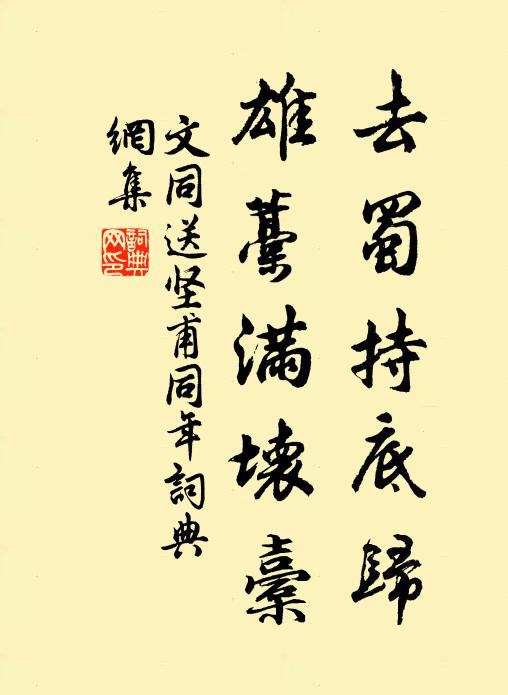 去蜀持底歸
雄藁滿壞橐
文同送坚甫同年詞典
網集
詞典
网印